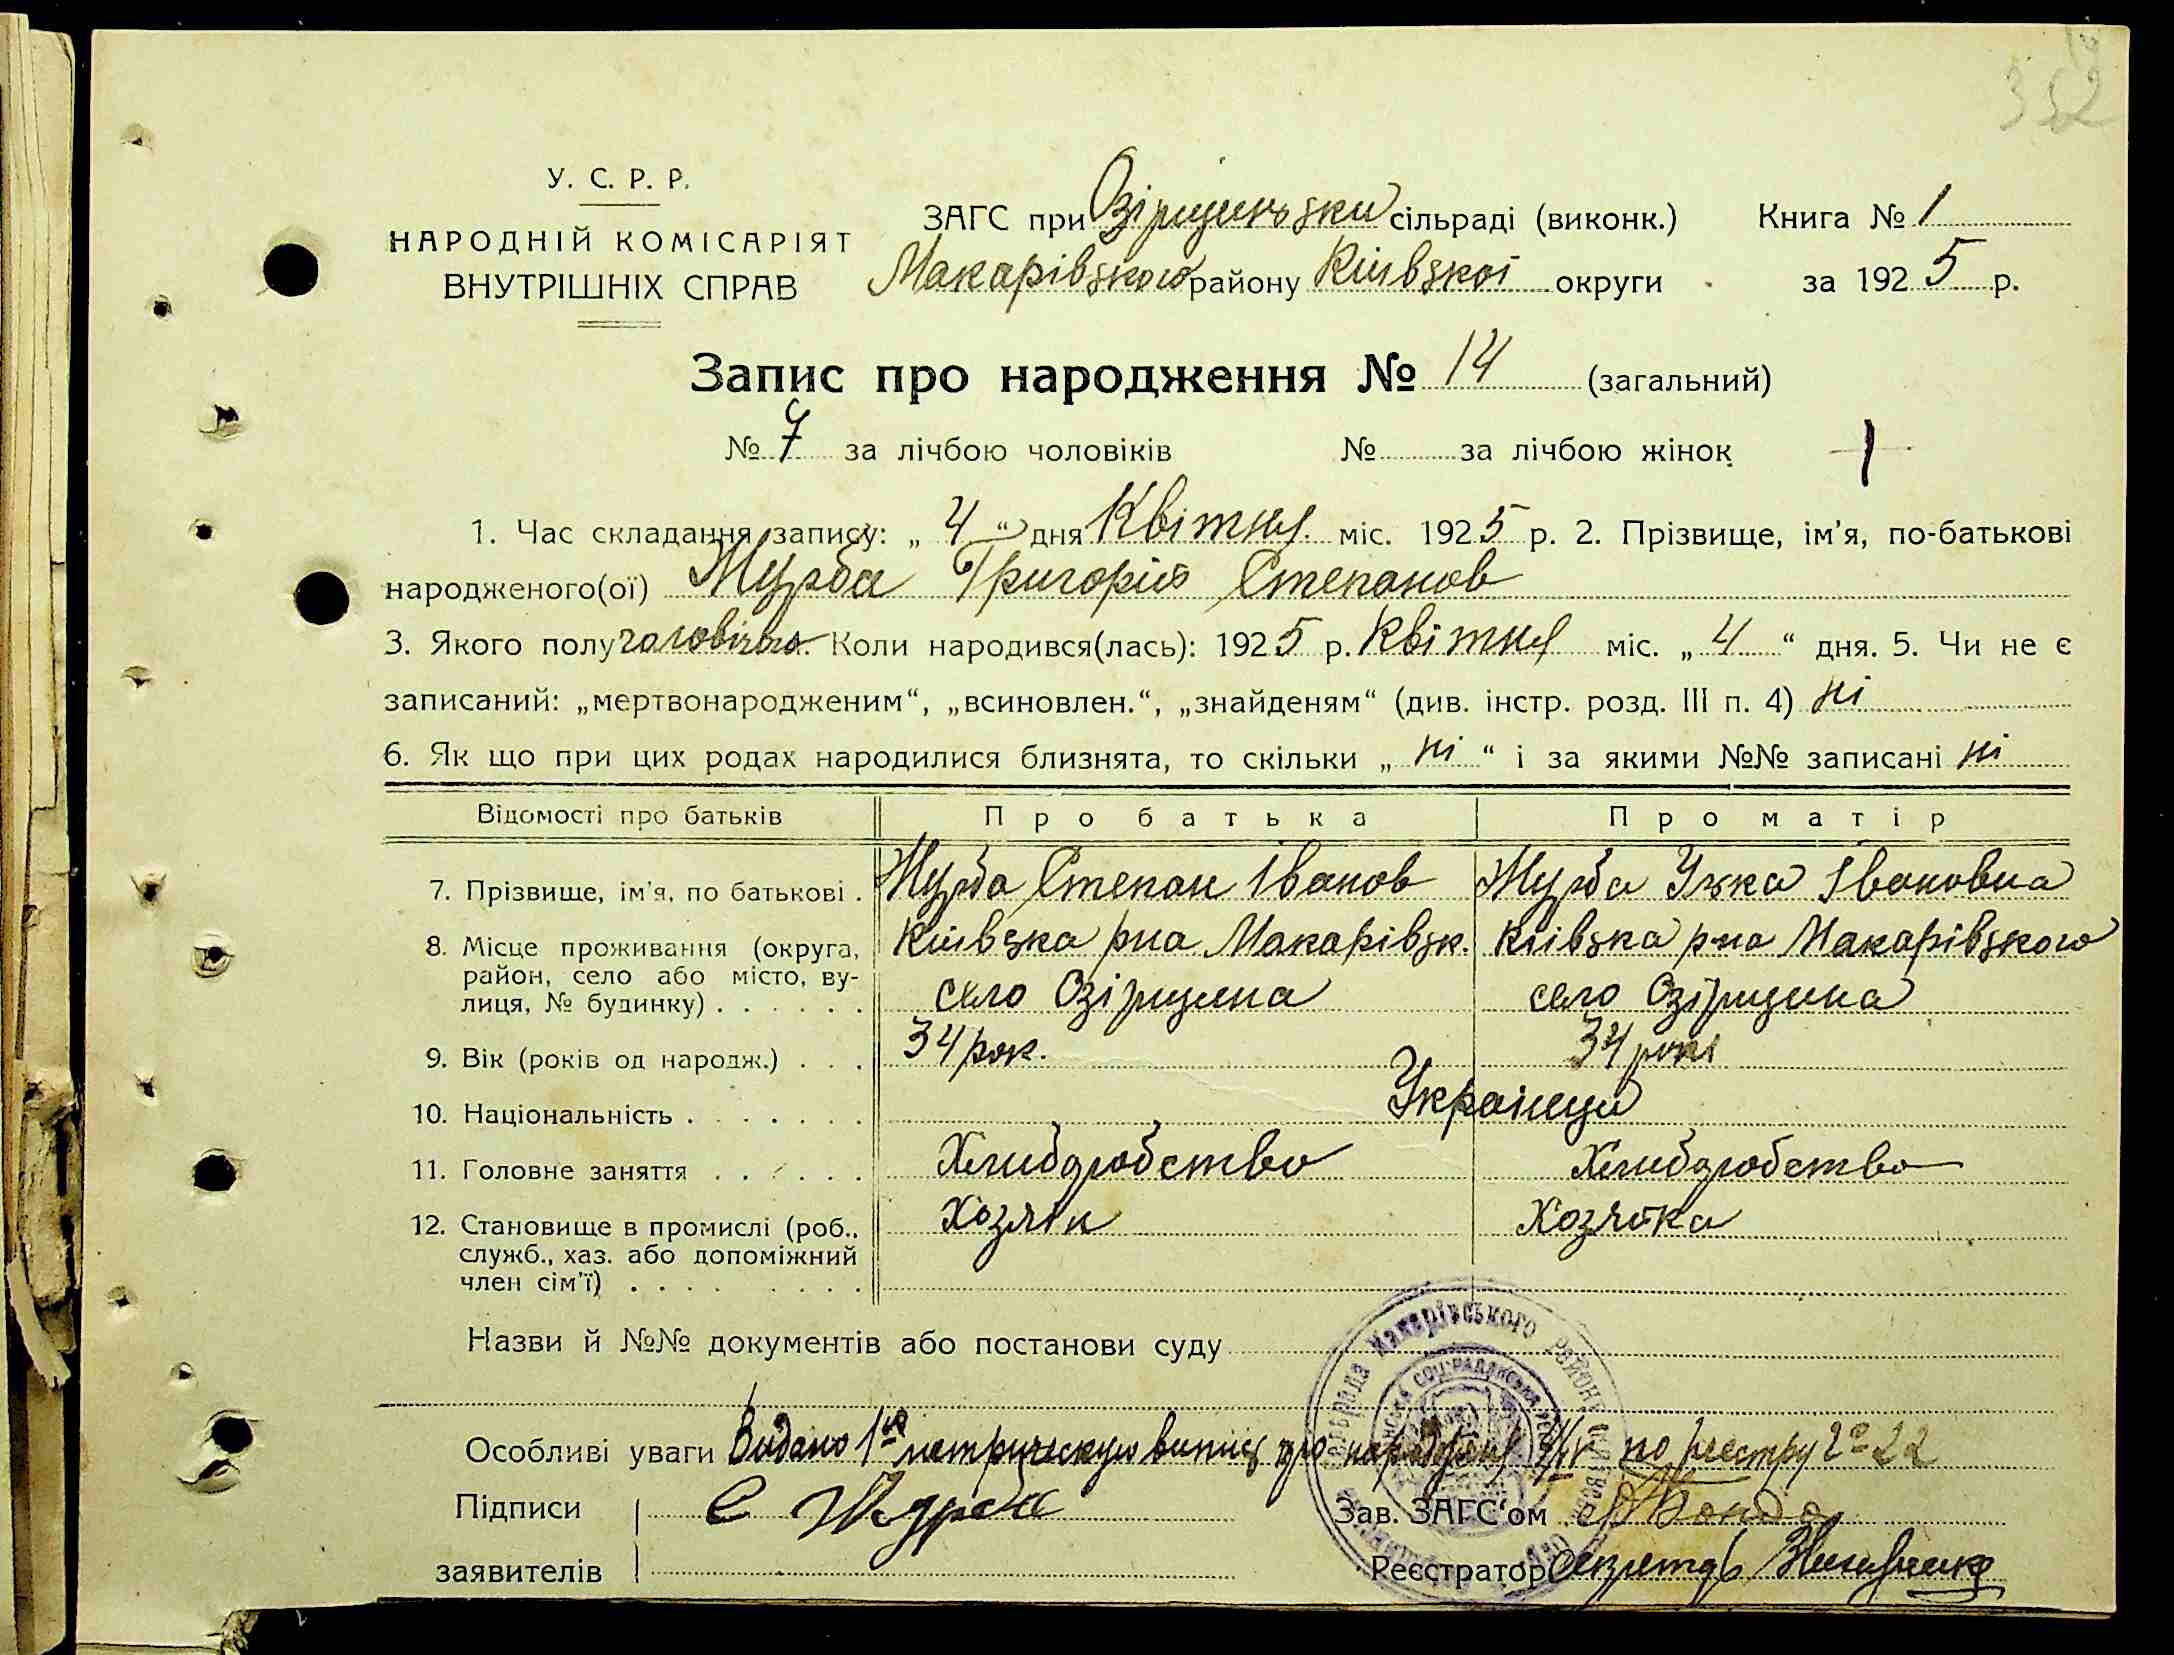 352
У. С. Р. Р.
НАРОДНІЙ КОМІСАРІЯТ
ВНУТРІШНІХ СПРАВ
ЗАГС при Озірщинськи сільраді (виконк.) Книга № 1
Макарівского району Київскої округи за 1925 р.
Запис про народження № 14 (загальний)
№ 7 за лічбою чоловіків № за лічбою жінок
1. Час складання запису: „ 4 “ дня Квітня міс. 1925 р. 2. Прізвище, ім'я, по-батькові
народженого(ої) Журба Григорій Степанов
3. Якого полу чоловічого. Коли народився(лась): 1925 р. Квітня міс. „ 4 “ дня. 5. Чи не є
записаний: „мертвонародженим“, „всиновлен.“, „знайденям“ (див. інстр. розд. III п. 4) ні
6. Як що при цих родах народилися близнята, то скільки „ ні “ і за якими №№ записані ні
Відомості про батьків Про батька Про матір
7. Прізвище, ім'я, по батькові . Журба Степан Іванов Журба Івановна
8. Місце проживання (округа, Київска рна Макарівск. Київска р-на Макарівского
район, село або місто, ву-
лиця, № будинку) . . . . . . село Озірщина село Озірщина
9. Вік (років од народж.) . . . 34 рок. 34 рокі
10. Національність . . . . . . . Українци
11. Головне заняття . . . . . . Хлибдробство Хлибдробство
12. Становище в промислі (роб., Хозяїн Хозяйка
служб., хаз. або допоміжний
член сім'ї) . . . . . . . . .
Назви й №№ документів або постанови суду
Особливі уваги Видано 1 метрическую випись про народженя 4/IV по реестру № 22
Підписи С Журба Зав. ЗАГС‘ом
заявителів Реєстратор Секретарь
Макарівського району